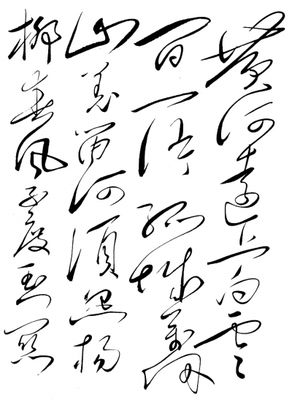 黄河远上白云
间一片孤城万仞
山羌笛何须怨杨
柳春风不度玉门关